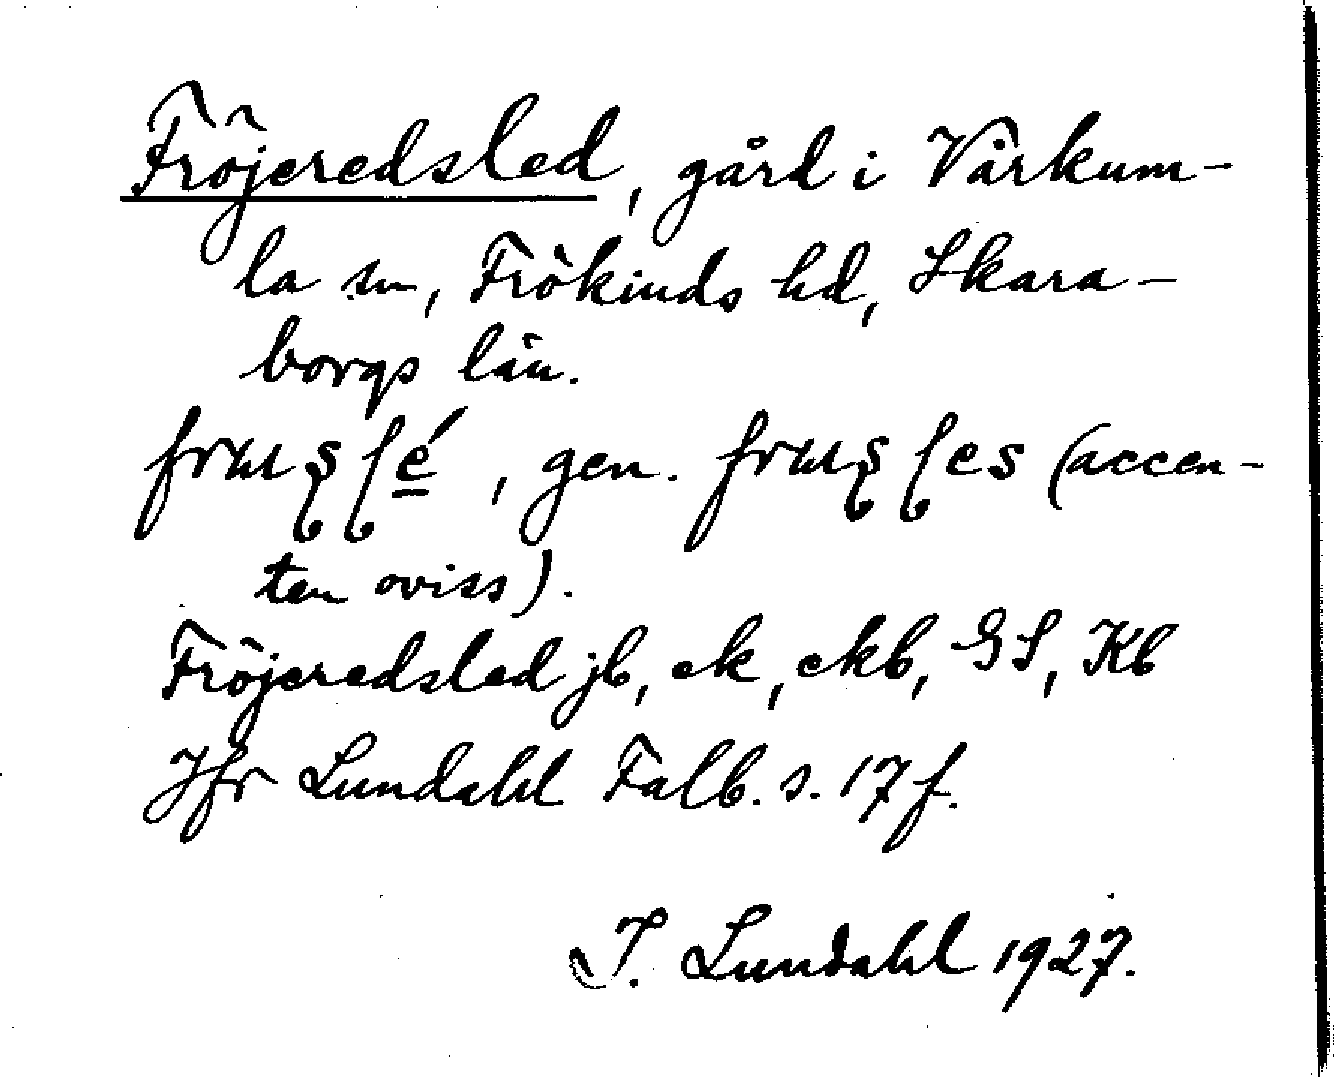 Fröjeredsled, gård i Vårkum-
la sn, Frökinds hd, Skara-
borgs län.
gen. (accen-
ten oviss).
Fröjeredsled jb, ek, ekb, GS, Kb
Jfr Lundahl Falb. s. 17 f.
I. Lundahl 1927.